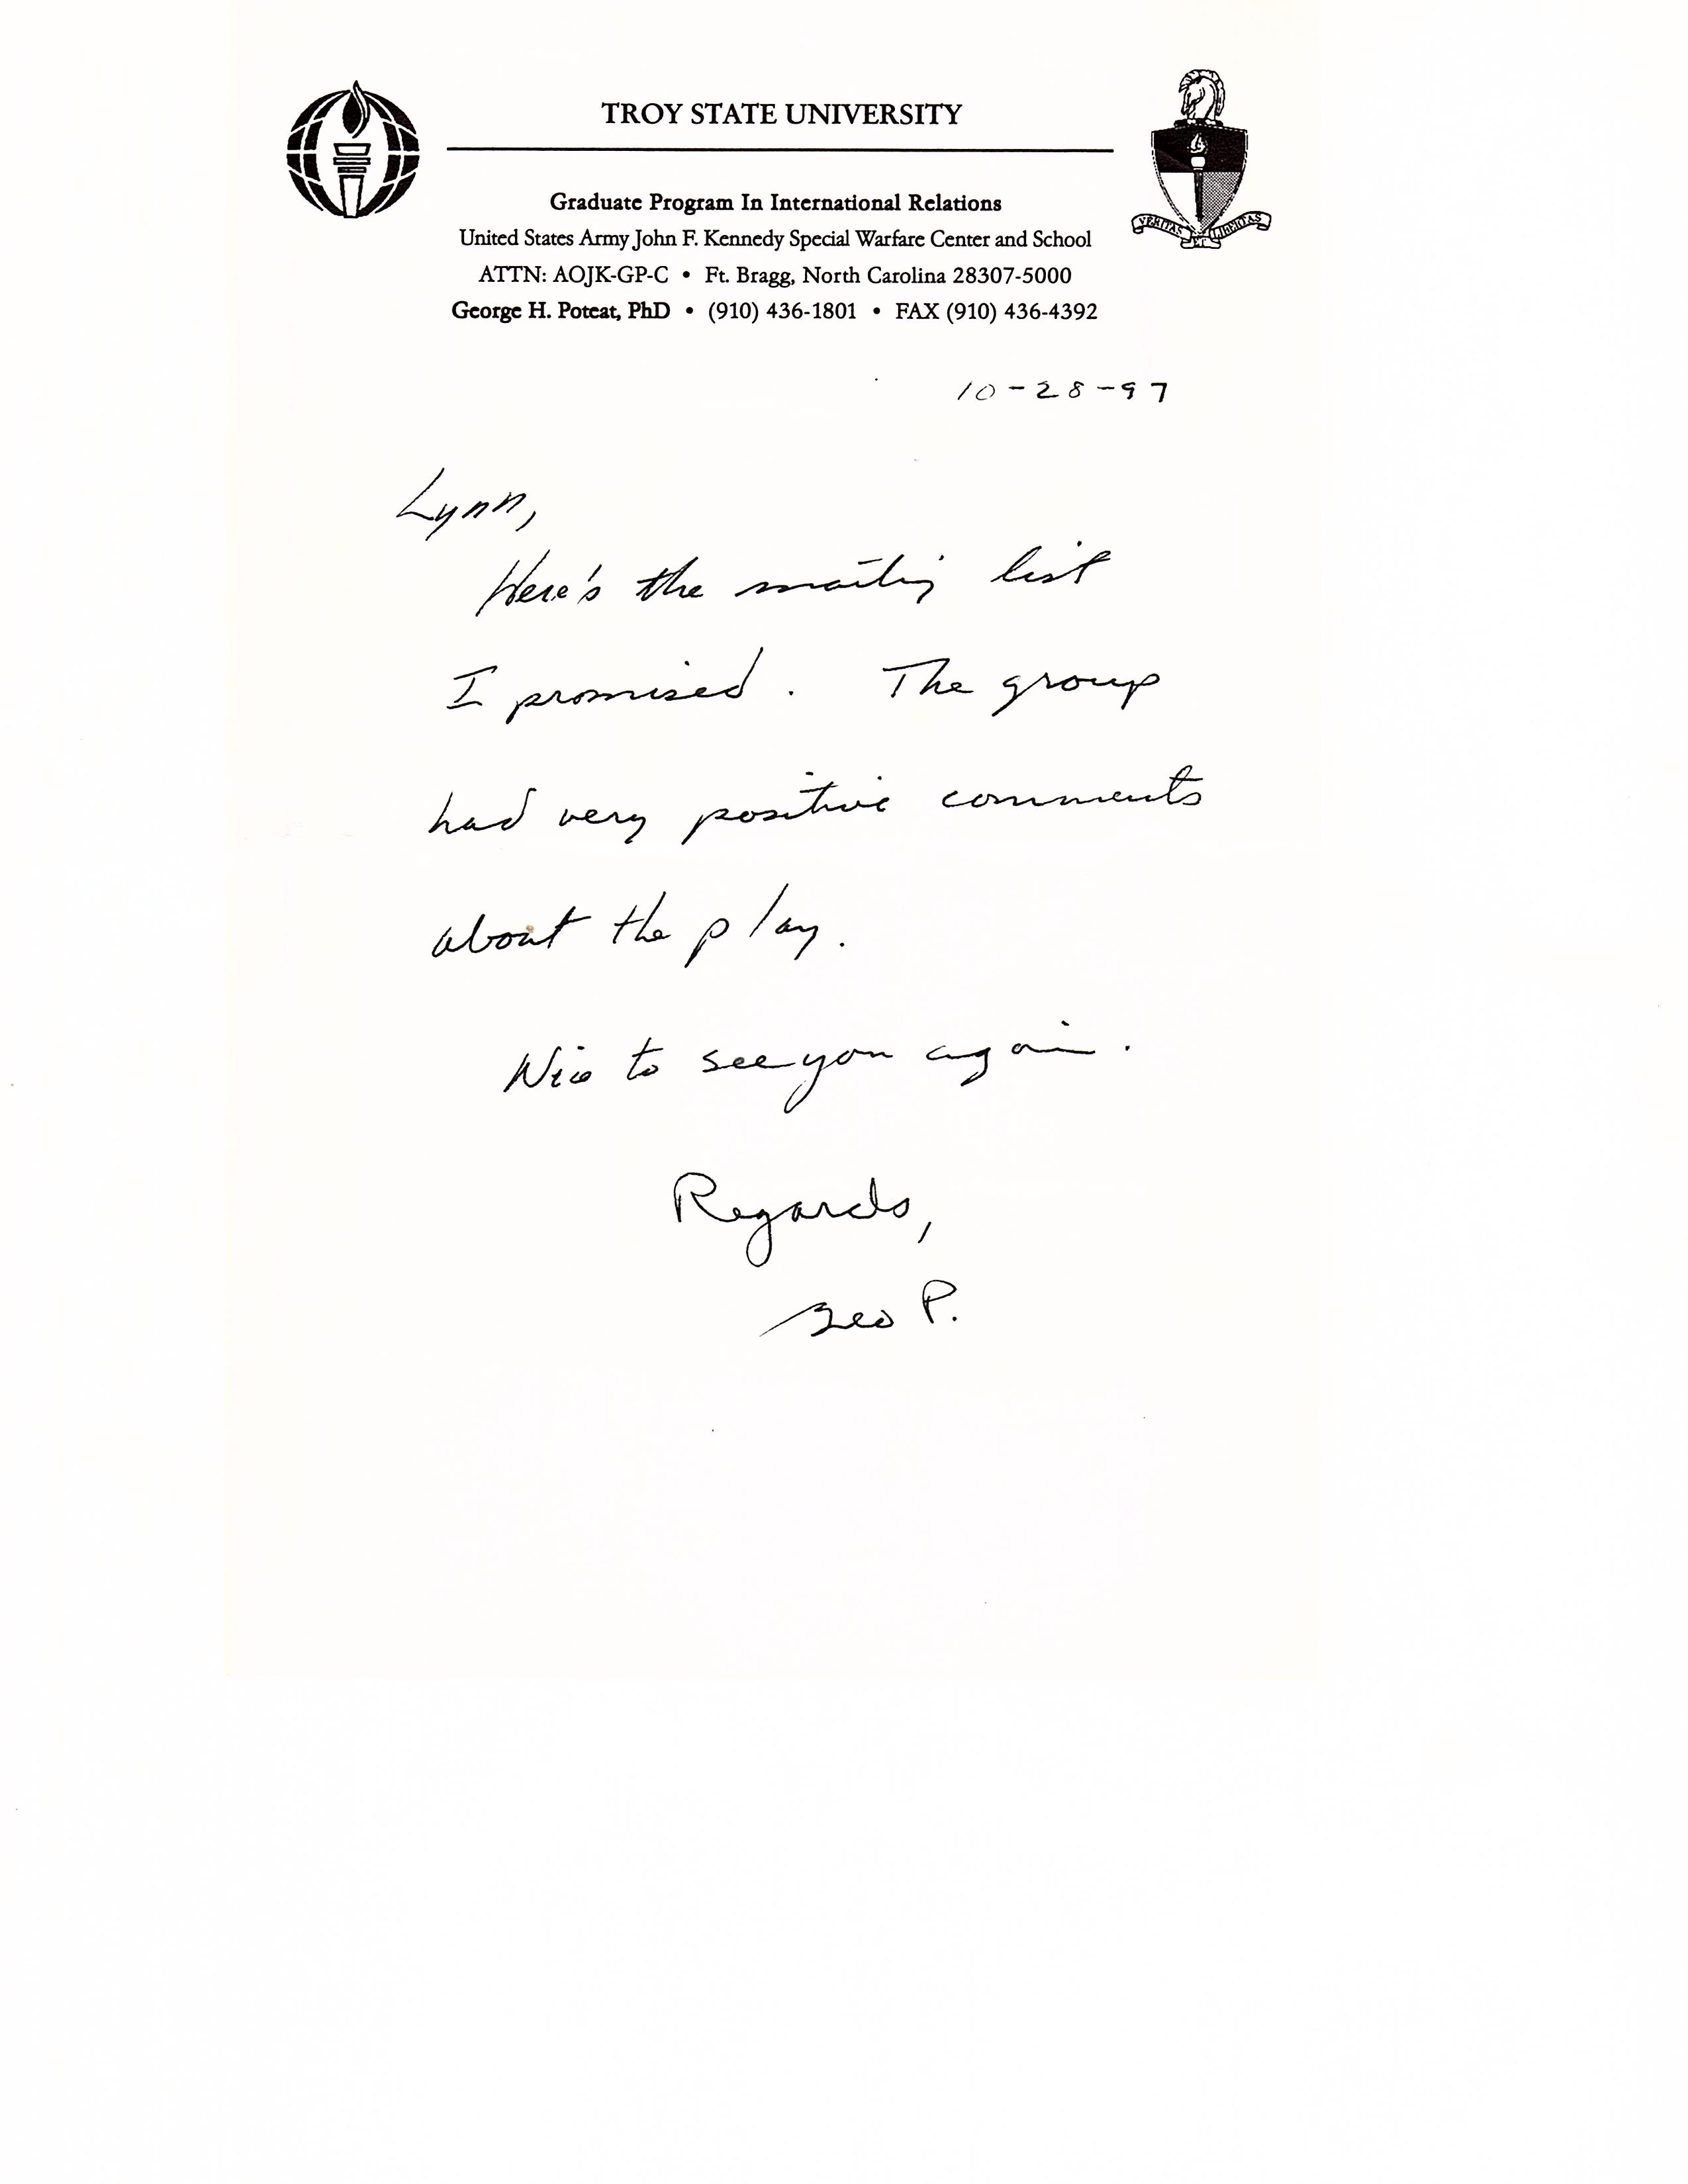 TROY STATE UNIVERSITY
Graduate Program In International Relations
United States Army John F. Kennedy Special Warfare Center and School
ATTN: AOJK-GP-C • Ft. Bragg, North Carolina 28307-5000
George H. Poteat, PhD • (910) 436-1801 • FAX (910) 436-4392
VERITAS ET LIBERITAS
10-28-97
Lynn,
Here's the mailing list
I promised. The group
had very positive comments
about the play.
Nice to see you again.
Regards,
Geo P.